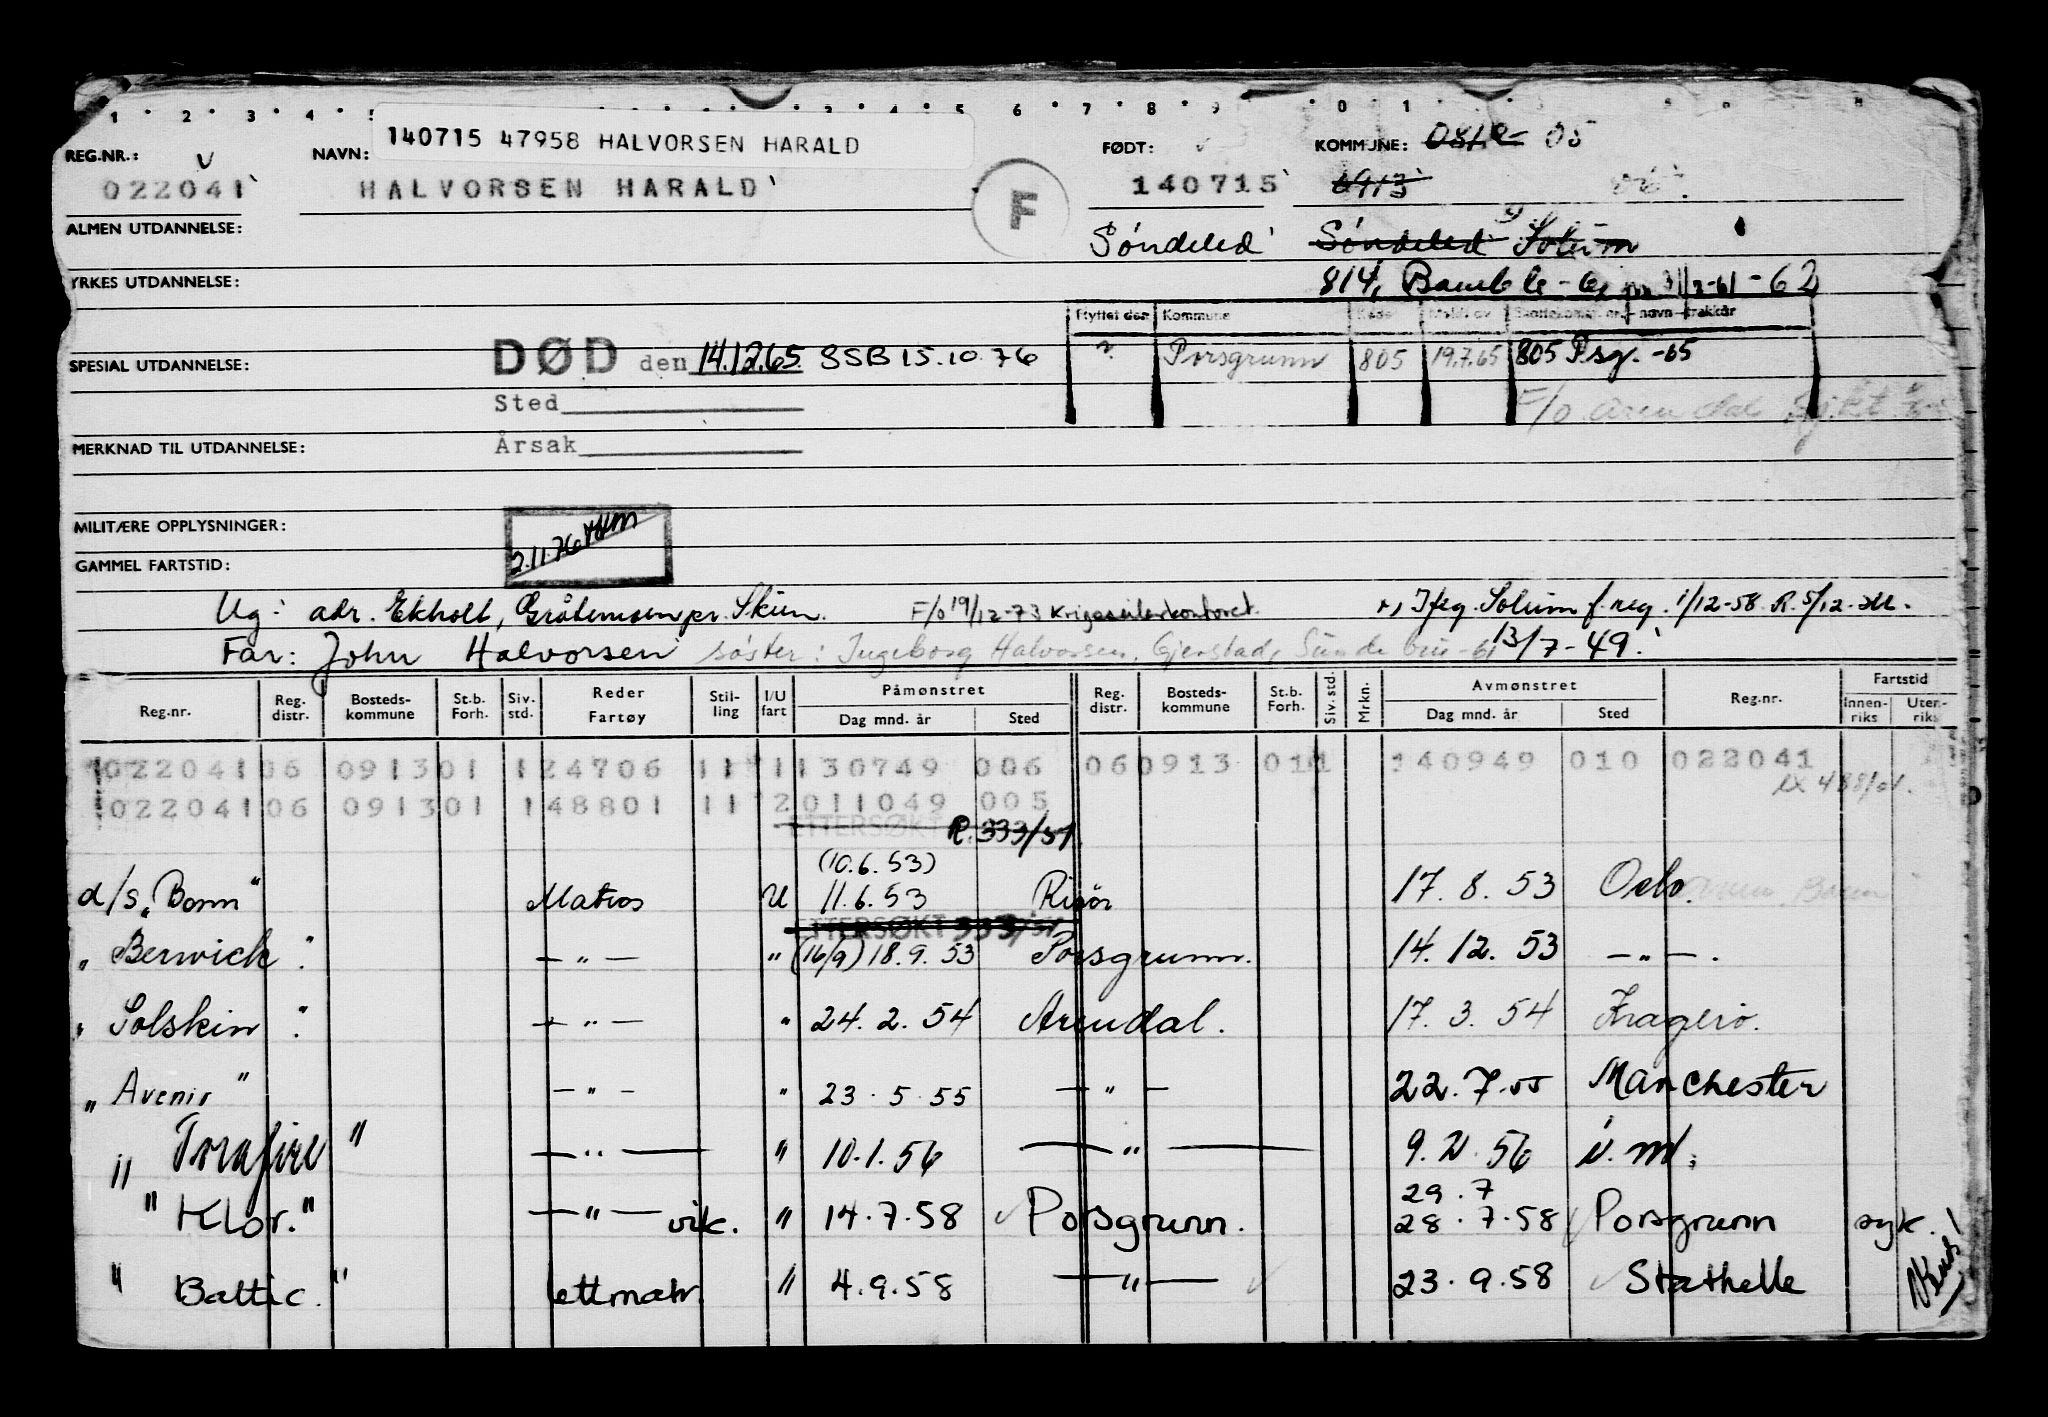 1 2 3 4 5 3 4 5 6 7 8 9 0 1
140715 47958 HALVORSEN HARALD
REG.NR.: NAVN: FØDT: KOMMUNE: 0812 05
022041 HALVORSEN HARALD F 140715 0913
ALMEN UTDANNELSE: Søndeled Søndeled Solum
YRKES UTDANNELSE: 814, Bamble - 31/3-61 - 62
Flyttet den Kommune Kode Meldt av Skattekomm. nr. - navn - trekkår
SPESIAL UTDANNELSE: DØD den 14.12.65. SSB 15.10.76 ? Porsgrunn 805 19.7.65 805 Psg. -65
Sted F/o Arendal
MERKNAD TIL UTDANNELSE: Årsak
MILITÆRE OPPLYSNINGER: 2.11.76
GAMMEL FARTSTID:
Ug: adr. Ekholt, Gråtenmoen pr. Skien. F/o 19/12-73 Krigsseilerkontoret. Solum f. reg. 1/12-58. R. 5/12-
Far: John Halvorsen søster: Ingeborg Halvorsen, Gjerstad, Sundebru -61 13/7-49.
Reg.nr. Reg. distr. Bosteds-kommune St.b. Forh. Siv. std. Reder Fartøy Stil-ling I/U fart Påmønstret Dag mnd. år Sted Reg. distr. Bosteds-kommune St.b. Forh. Siv. std. Mrkn. Avmønstret Dag mnd. år Sted Reg.nr. Fartstid Innen-riks Uten-riks
022041 06 0913 01 1 24706 11 1 130749 006 06 0913 01 1 140949 010 022041
022041 06 0913 01 1 48801 11 2 011049 005
ETTERSØKT R. 333/51
(10.6.53)
d/s "Bonn" Matros U 11.6.53 Risør 17.8.53 Oslo.
ETTERSØKT 333/51
" Berwick " — " — " (16/9) 18.9.53 Porsgrunn. 14.12.53 — " — .
" Solskin " — " — " 24.2.54 Arendal. 17.3.54 Kragerø.
" Avenir " — " — " 23.5.55 — " — 22.7.55 Manchester
" Torafire " — " — " 10.1.56 — " — 9.2.56 i.m.
29.7
" Klor. " — " — vik. " 14.7.58 Porsgrunn. 28.7.58 Porsgrunn syk.
" Baltic. " lettmatr. " 4.9.58 — " — 23.9.58 Stathelle